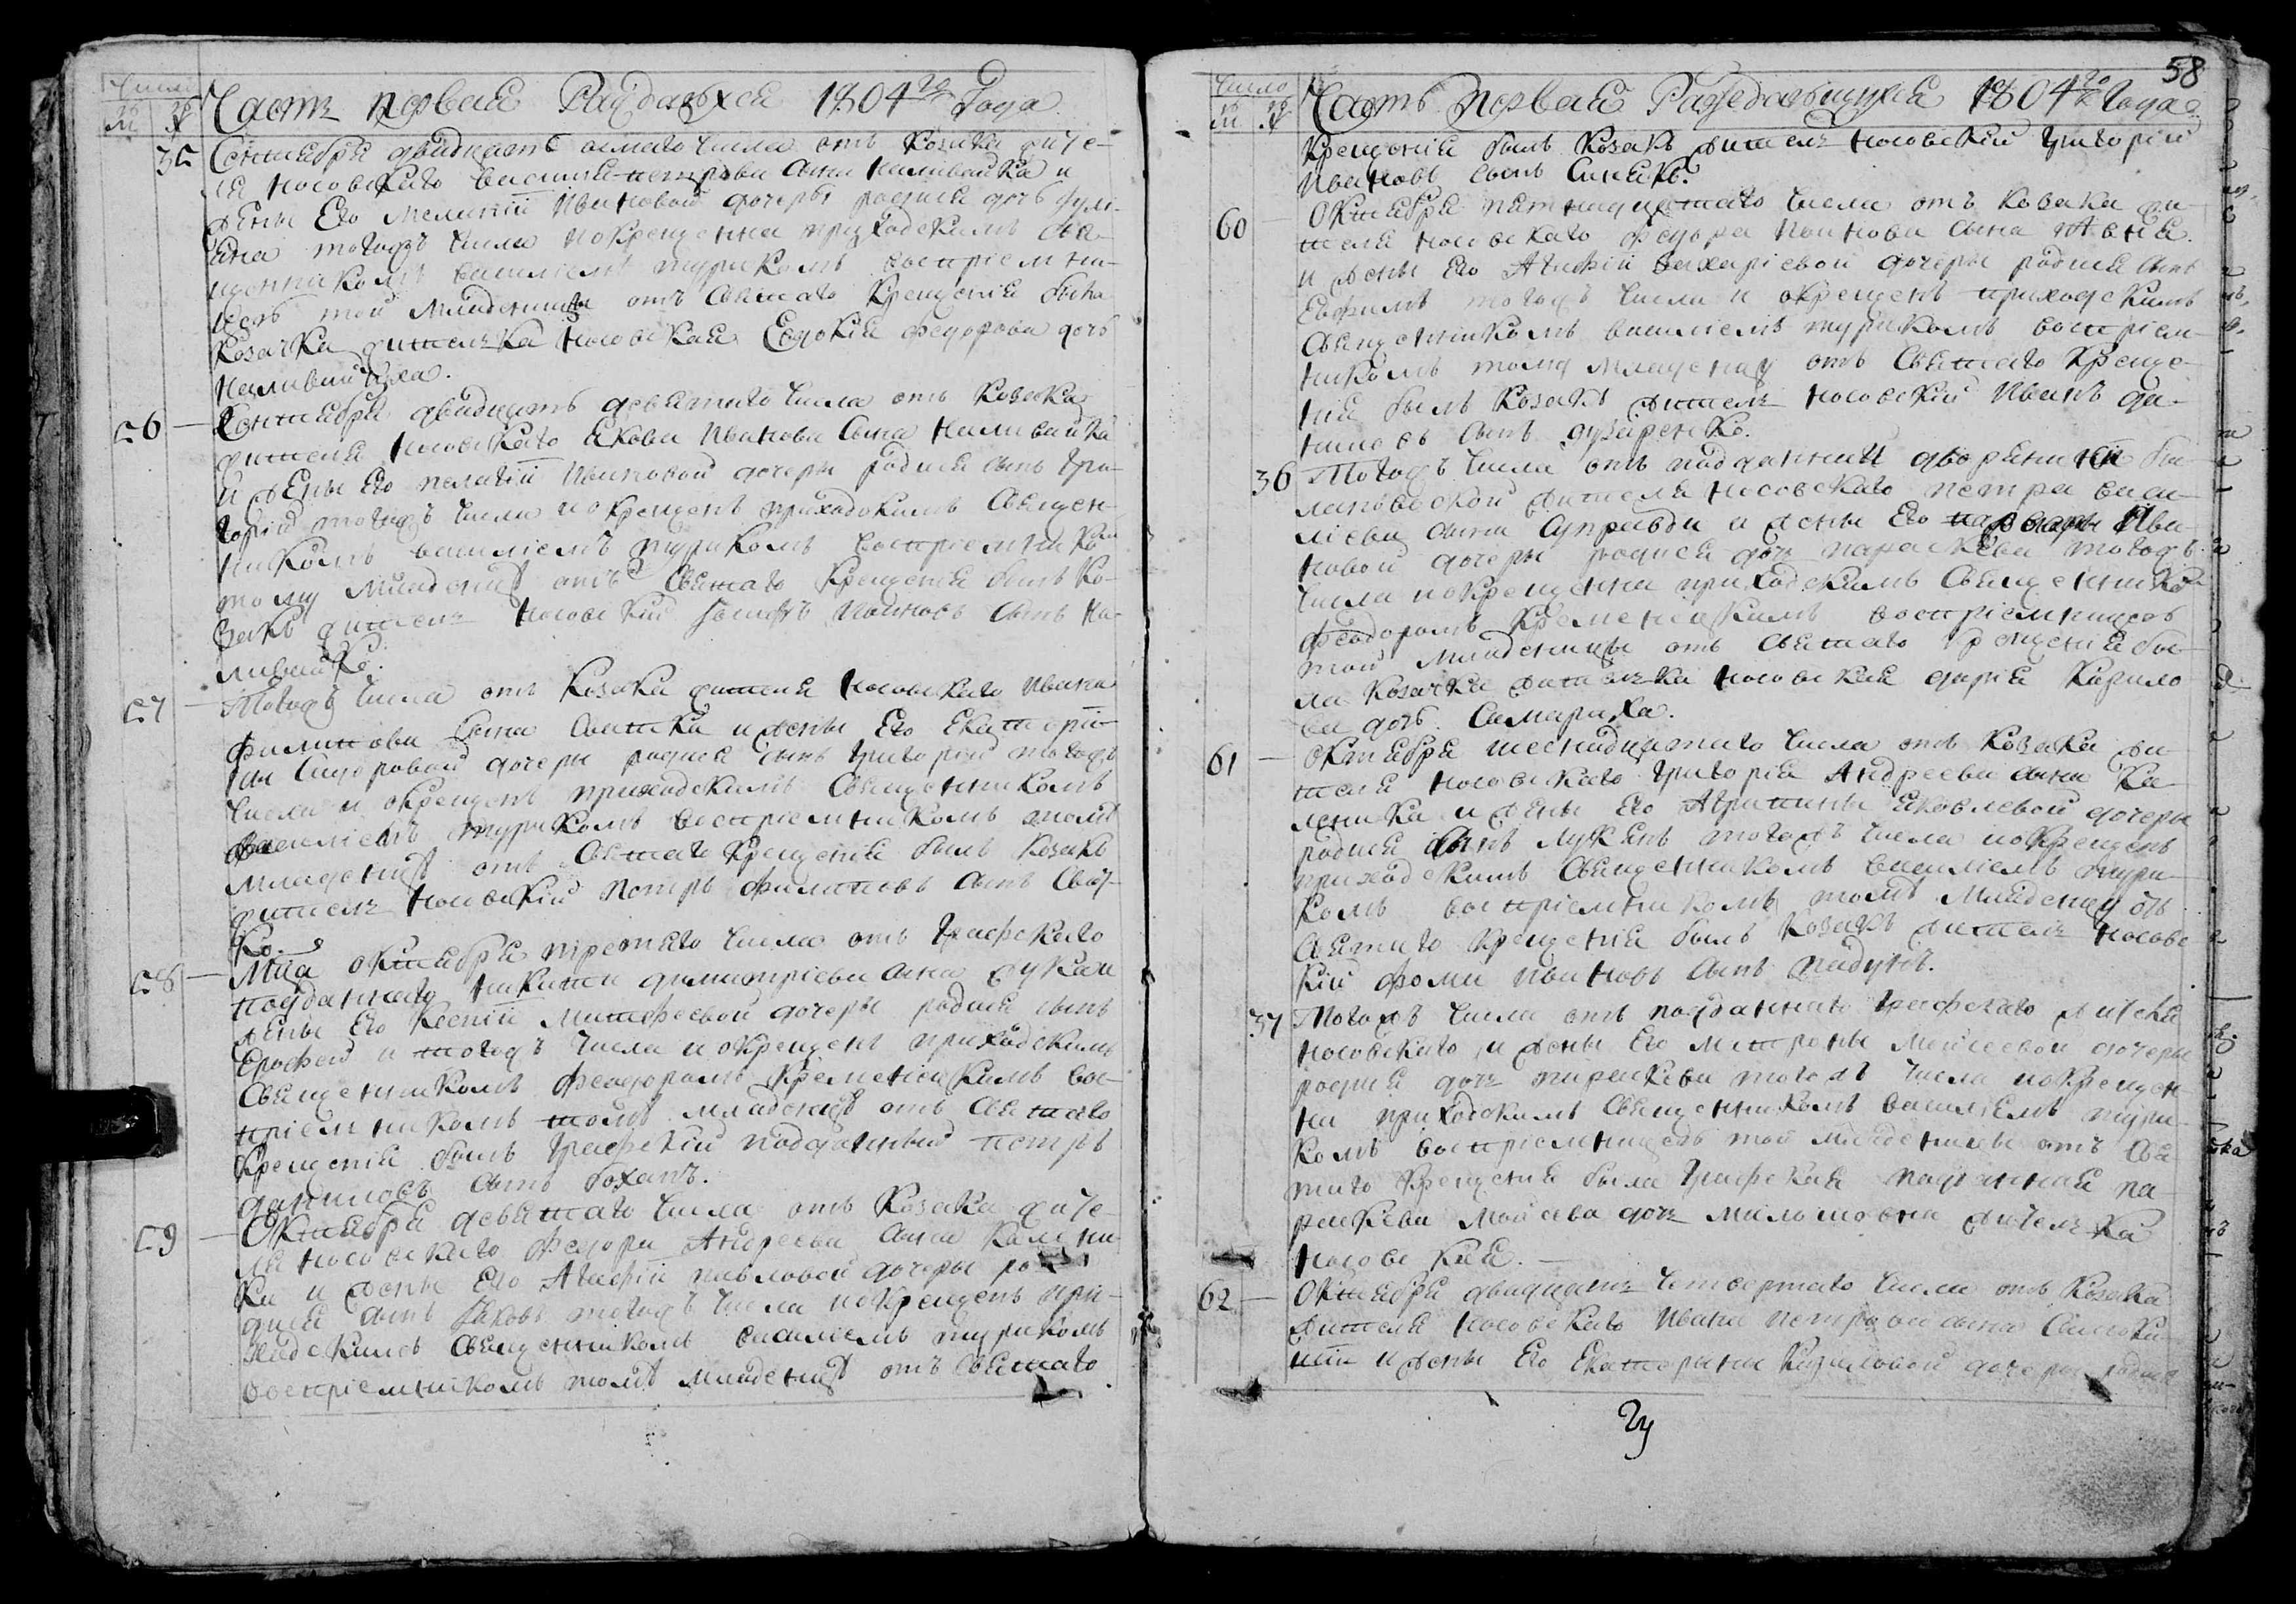 Число
м ж
Часть первая о раждающихся 1804го Года
35 Сентября двадцать осмаго числа отъ козака жите-
ля носовскаго василия петрова сына наливайка и
жены Его мелании Ивановой дочеры родися дочь Іулі-
ана тогожъ числа и окрещенна приходскимъ свя-
щенникомъ василіемъ туркомъ воспріемни-
цею той младеницы отъ святаго крещенія была
козачка жителька носовская Евдокія федорова дочь
наливайчиха.
56 — Сентября двадцать девятаго числа отъ козака
жителя носовскаго якова Иванова сына наливайка
и жены Его пелагіи Ивановой дочеры родися сынъ гри-
горій тогожъ числа и окрещенъ приходскимъ священ-
никомъ василіемъ туркомъ воспріемникомъ
тому младенцу отъ святаго крещенія былъ ко-
закъ житель носовскій Иванновъ сынъ на-
ливайко.
57 — Тогожъ числа отъ козака жителя носовскаго Ивана
филипова сына и жены Его Екатери-
ны Сидоровой дочеры родися сынъ григорій тогожъ
числа и окрещенъ приходскимъ священникомъ
василіемъ туркомъ воспріемникомъ тому
младенцу отъ святаго крещенія былъ козакъ
житель носовскій петръ филиповъ сынъ
ко.
58 — Мца октября третяго числа отъ графскаго
подданнаго никиты димитріева сына и
жены Его Ксеніи матфеевой дочеры родися сынъ
Ерофей и тогожъ числа и окрещенъ приходскимъ
священникомъ феодоромъ кременецкимъ вос-
пріемникомъ тому младенцу отъ святаго
крещенія былъ графскій подданный петръ
даниловъ сынъ боханъ.
59 — Октября девятаго числа отъ козака жите-
ля носовскаго федора Андреева сына калени-
ка и жены Его Агафіи павловой дочеры ро-
дися сынъ яковъ тогожъ числа и окрещенъ при-
ходскимъ священникомъ василіемъ туркомъ
воспріемникомъ тому младенцу отъ святаго
58
Число
м ж
Часть первая о раждающихся 1804го Года
крещенія былъ козакъ житель носовскій григорій
Ивановъ сынъ синякъ.
60 — Октября пятнадцатаго числа отъ козака жи-
теля носовскаго федора Иванова сына
и жены Его Агафіи захаріевой дочеры родися сынъ
Евфимъ тогожъ числа и окрещенъ приходскимъ
священникомъ василіемъ туркомъ воспріем-
никомъ тому младенцу отъ святаго креще-
нія былъ козакъ житель носовскій Иванъ да-
ниловъ сынъ дударенко.
36 Тогожъ числа отъ подданнаго дворянки би-
лановской жителя носовскаго петра васи-
ліева сына Супрвди и жены Его Ива-
новой дочеры родися дочь параскева тогожъ
числа и окрещенна приходскимъ священникомъ
феодоромъ кременецкимъ воспріемницею
той младеницы отъ святаго крещенія бы-
ла козачка жителька носовская дарія кирило-
ва дочь Самариха.
61 — Октября шеснадцятаго числа отъ козака жи-
теля носовскаго григорія Андреева сына ка-
леника и жены Его Агрипины яковлевой дочеры
родися сынъ лукянъ тогожъ числа и окрещенъ
приходскимъ священникомъ василіемъ тур-
комъ воспріемникомъ тому младенцу отъ
святаго крещенія былъ козакъ житель носовс
кій фома Ивановъ сынъ
37 Тогожъ числа отъ подданнаго графскаго жителя
носовскаго и жены Его матроны моисеевой дочеры
родися дочь параскева тогожъ числа и окрещен-
на приходскимъ священникомъ василіемъ тур-
комъ воспріемницею той младеницы отъ свя-
таго крещенія была графская подданная па-
раскева моисеева дочь жителька
носовская. —
62 — Октября двадцать четвертаго числа отъ козака
жителя носовскаго Ивана петрова сына
и жены Его Екатерины кириловой дочеры родися